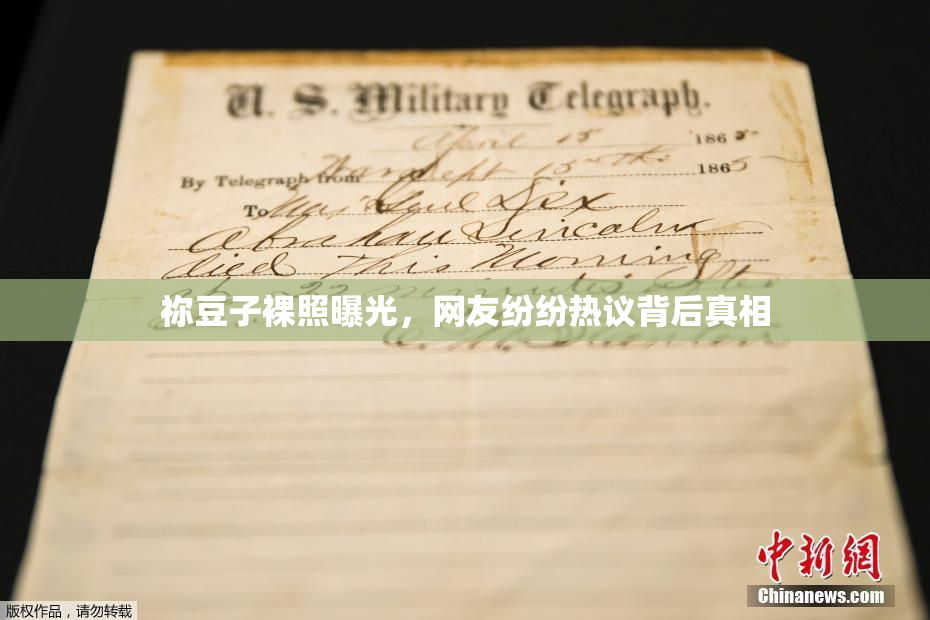 U. S. Military Telegraph.
April 15 1865
By Telegraph from War Dept 15th 1865
To Maj Genl Dix
Abraham Lincoln
died This Morning
at 22 minutes after
祢豆子裸照曝光，网友纷纷热议背后真相
中新網
Chinanews.com
版权作品，请勿转载